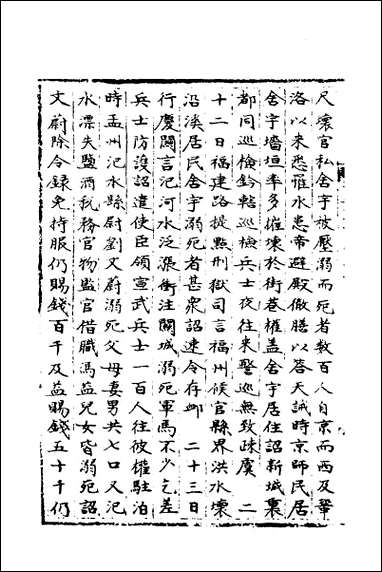 尺壞官私舍宇被壓溺而死者數百人自京而西及鞏
洛以來悉罹水患帝避殿徹膳以答天誡時京師民居
舍宇墻垣率多摧壞於街巷權蓋舍宇居住詔新城裏
都同巡檢鈐轄巡檢兵士夜往來警巡無致疎虞　二
十二日福建路提㸃刑獄司言福州候官縣界洪水壞
沿溪居民舍宇溺死者甚衆詔速令存卹　二十三日
行慶關言汜河水泛漲衝注關城溺死軍馬不少乞差
兵士防護詔遣使臣領宣武兵士一百人往彼權駐泊
時孟州汜水縣尉劉文蔚溺死父母妻男共七口又汜
水漂失鹽酒稅務官物監官借職馮益兒女皆溺死詔
文蔚除令録免持服仍賜錢百千及益賜錢五十千仍